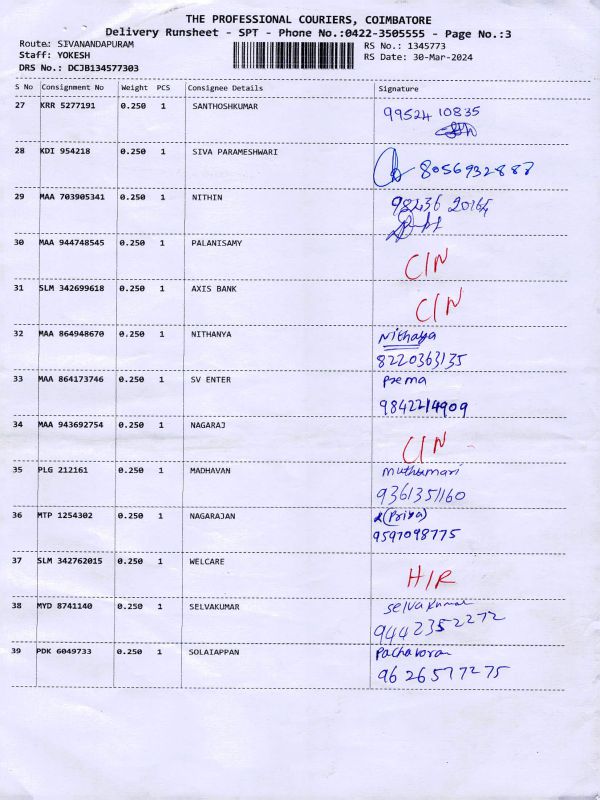 THE PROFESSIONAL COURIERS, COIMBATORE
Delivery Runsheet - SPT - Phone No.:0422-3505555 - Page No.:3
Route: SIVANANDAPURAM RS No.: 1345773
Staff: YOKESH RS Date: 30-Mar-2024
DRS No.: DCJB134577303
S No Consignment No Weight PCS Consignee Details Signature
27 KRR 5277191 0.250 1 SANTHOSHKUMAR 99524 10835
28 KDI 954218 0.250 1 SIVA PARAMESHWARI 8056932887
29 MAA 703905341 0.250 1 NITHIN 98436 20164
30 MAA 944748545 0.250 1 PALANISAMY C/N
31 SLM 342699618 0.250 1 AXIS BANK C/N
32 MAA 864948670 0.250 1 NITHANYA Nithaya
8220363135
33 MAA 864173746 0.250 1 SV ENTER Prema
9842214909
34 MAA 943692754 0.250 1 NAGARAJ C/N
35 PLG 212161 0.250 1 MADHAVAN Muthumari
9361351160
36 MTP 1254302 0.250 1 NAGARAJAN (Priya)
9597098775
37 SLM 342762015 0.250 1 WELCARE H/R
38 MYD 8741140 0.250 1 SELVAKUMAR Selvakumar
9442352272
39 PDK 6049733 0.250 1 SOLAIAPPAN
9626577275